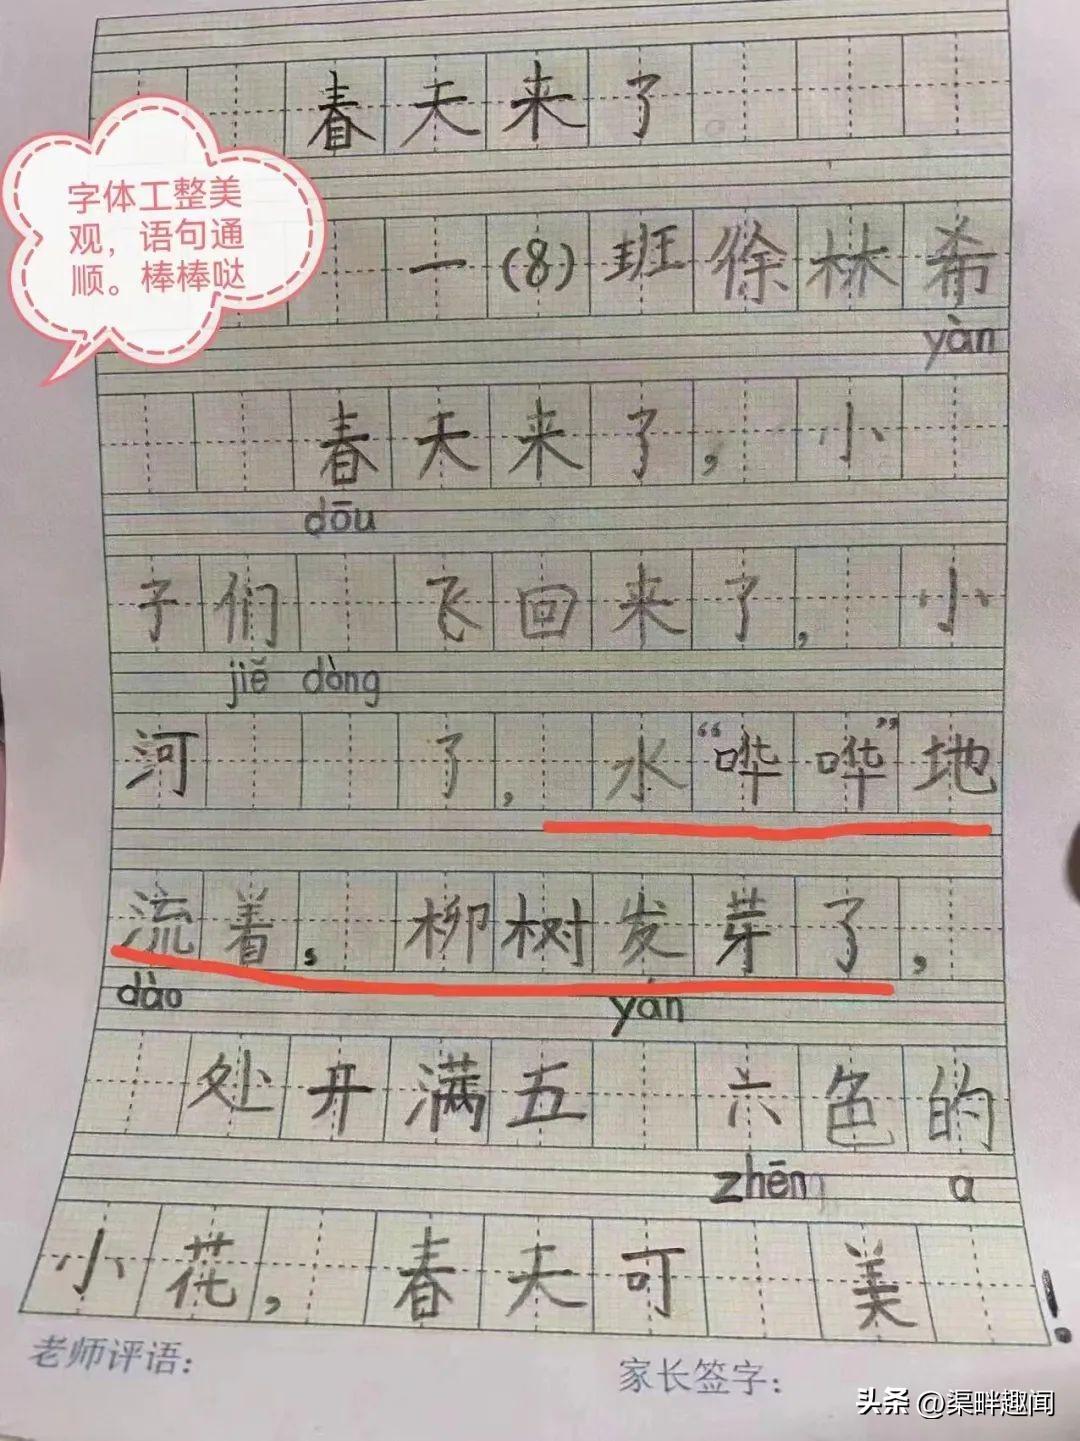 春天来了
字体工整美
观，语句通
顺。棒棒哒
一(8)班徐林希
yàn
春天来了，小
dōu
子们 飞回来了，小
jiě dòng
河 了，水“哗哗”地
流着，柳树发芽了，
dào yán
处开满五 六色的
zhēn a
小花，春天可 美 !
老师评语：
家长签字：
头条 @渠畔趣闻